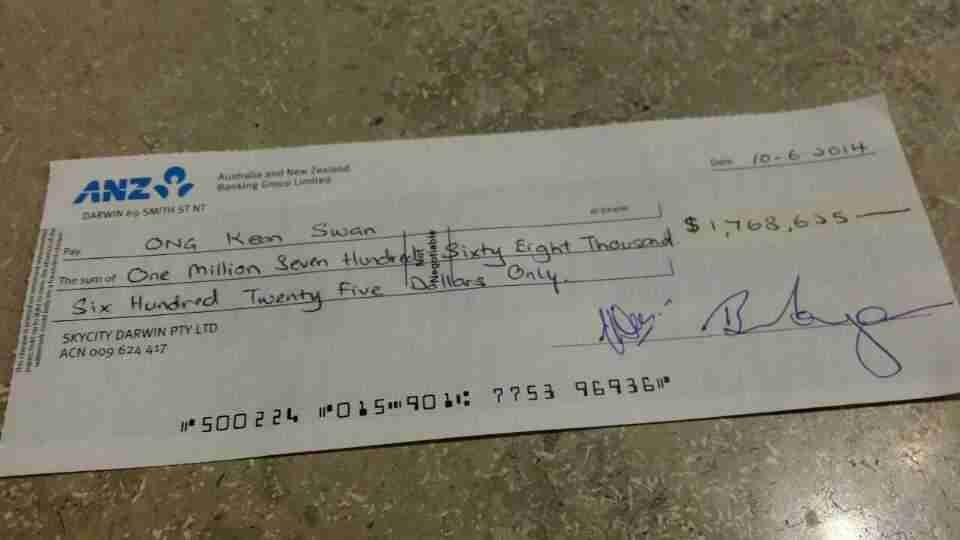 ANZ
Australia and New Zealand
Banking Group Limited
DARWIN 69 SMITH ST NT
Date 10-6-2014
Pay ONG Keon Swan
or bearer
The sum of One Million Seven Hundred Sixty Eight Thousand
$1,768,625
Not Negotiable
Six Hundred Twenty Five Dollars Only.
SKYCITY DARWIN PTY LTD
ACN 009 624 417
⑈500224 ⑈015⑉901⑆ 7753 96936⑈